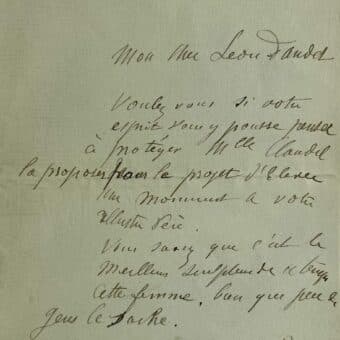 Mon cher Leon Daudet
Voulez vous si votre
esprit vous y pousse penser
à protéger Mlle Claudel
la proposer pour le projet d'Elever
un monument a votre
illustre Père.
Vous savez que c'est le
meilleur sculpteur de ce temps
cette femme. bien que peu de
gens le sache.